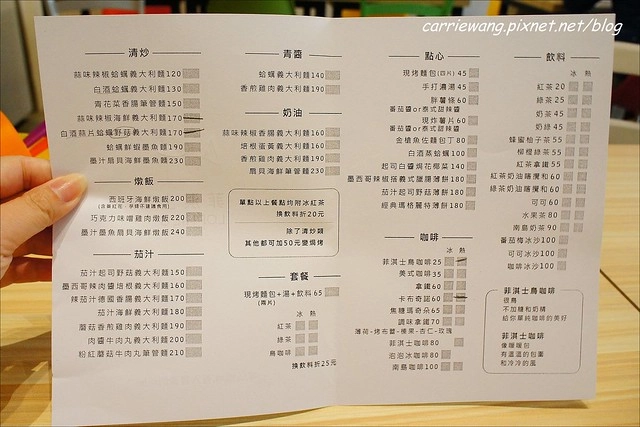 carriewang.pixnet.net/blog
清炒
蒜味辣椒蛤蠣義大利麵120
白酒蛤蠣義大利麵130
青花菜香腸筆管麵150
蒜味辣椒海鮮義大利麵170
白酒蒜片蛤蠣野菇義大利麵170
蛤蠣鮮蝦墨魚麵190
墨汁扇貝海鮮墨魚麵230
燉飯
西班牙海鮮燉飯200
巧克力味噌雞肉燉飯220
墨汁墨魚扇貝海鮮燉飯240
茄汁
茄汁起司野菇義大利麵150
墨西哥辣肉醬培根義大利麵160
辣茄汁德國香腸義大利麵170
茄汁海鮮義大利麵180
蘑菇香煎雞肉義大利麵190
肉醬牛肉丸義大利麵200
粉紅蘑菇牛肉丸筆管麵210
青醬
蛤蠣義大利麵140
香煎雞肉義大利麵190
奶油
蒜味辣椒香腸義大利麵160
培根蛋黃義大利麵160
香煎雞肉義大利麵190
扇貝海鮮筆管麵230
單點以上餐點均附冰紅茶
換飲料折20元
除了清炒類
其他都可加50元變焗烤
套餐
現烤麵包+湯+飲料 65
(兩片)
冰 熱
紅茶
綠茶
鳥咖啡
換飲料折25元
點心
現烤麵包(四片) 45
手打濃湯 45
胖薯條 60
番茄醬or泰式甜辣醬
現炸薯片 60
番茄醬or泰式甜辣醬
金槍魚佐麵包丁 80
白酒蒸蛤蠣100
起司白醬焗花椰菜140
墨西哥辣椒搭義式臘腸薄餅180
茄汁起司野菇薄餅180
經典瑪格麗特薄餅180
咖啡
冰 熱
菲淇士鳥咖啡 25
美式咖啡 35
拿鐵 60
卡布奇諾 60
焦糖瑪奇朵 65
調味拿鐵 70
薄荷-烤布蕾-榛果-杏仁-玫瑰
菲淇士咖啡 80
泡泡冰咖啡 80
南島咖啡100
飲料
冰 熱
紅茶 20
綠茶 25
奶茶 45
奶綠 45
蜂蜜柚子茶 55
柳橙綠茶 55
紅茶拿鐵 55
紅茶奶油隨攪和 60
綠茶奶油隨攪和 60
可可 60
水果茶 80
南島奶茶 90
番茄梅冰沙100
可可冰沙100
咖啡冰沙100
菲淇士鳥咖啡
很鳥
不加糖和奶精
給你單純咖啡的美好
菲淇士咖啡
像暖暖包
有溫溫的包圍
和冷冷的風